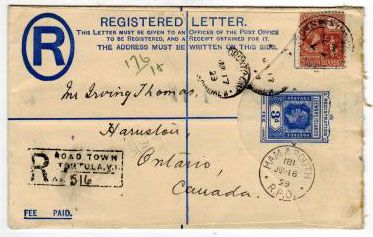 REGISTERED LETTER.
THIS LETTER MUST BE GIVEN TO AN OFFICER OF THE POST OFFICE
TO BE REGISTERED, AND A RECEIPT OBTAINED FOR IT.
THE ADDRESS MUST BE WRITTEN ON THIS SIDE.
R
176/18
Mr Irving Thomas,
Hamston,
Ontario,
Canada.
R
ROAD TOWN
TORTOLA, V.I.
No. 516
FEE PAID.
3d
HAM & SOUTH
181
JU 16
29
R.P.O.
17